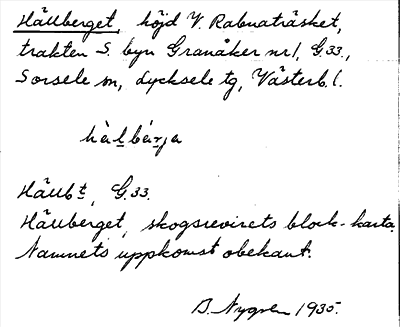 Hällberget, höjd V. Rabnaträsket,
trakten S. byn Granåker nr 1, G.33.,
Sorsele sn, Lycksele tg, Västerb. l.
hàlbærja
Hällbt, G.33.
Hällberget, skogsrevirets block-karta.
Namnets uppkomst obekant.
B. Nygren 1935.